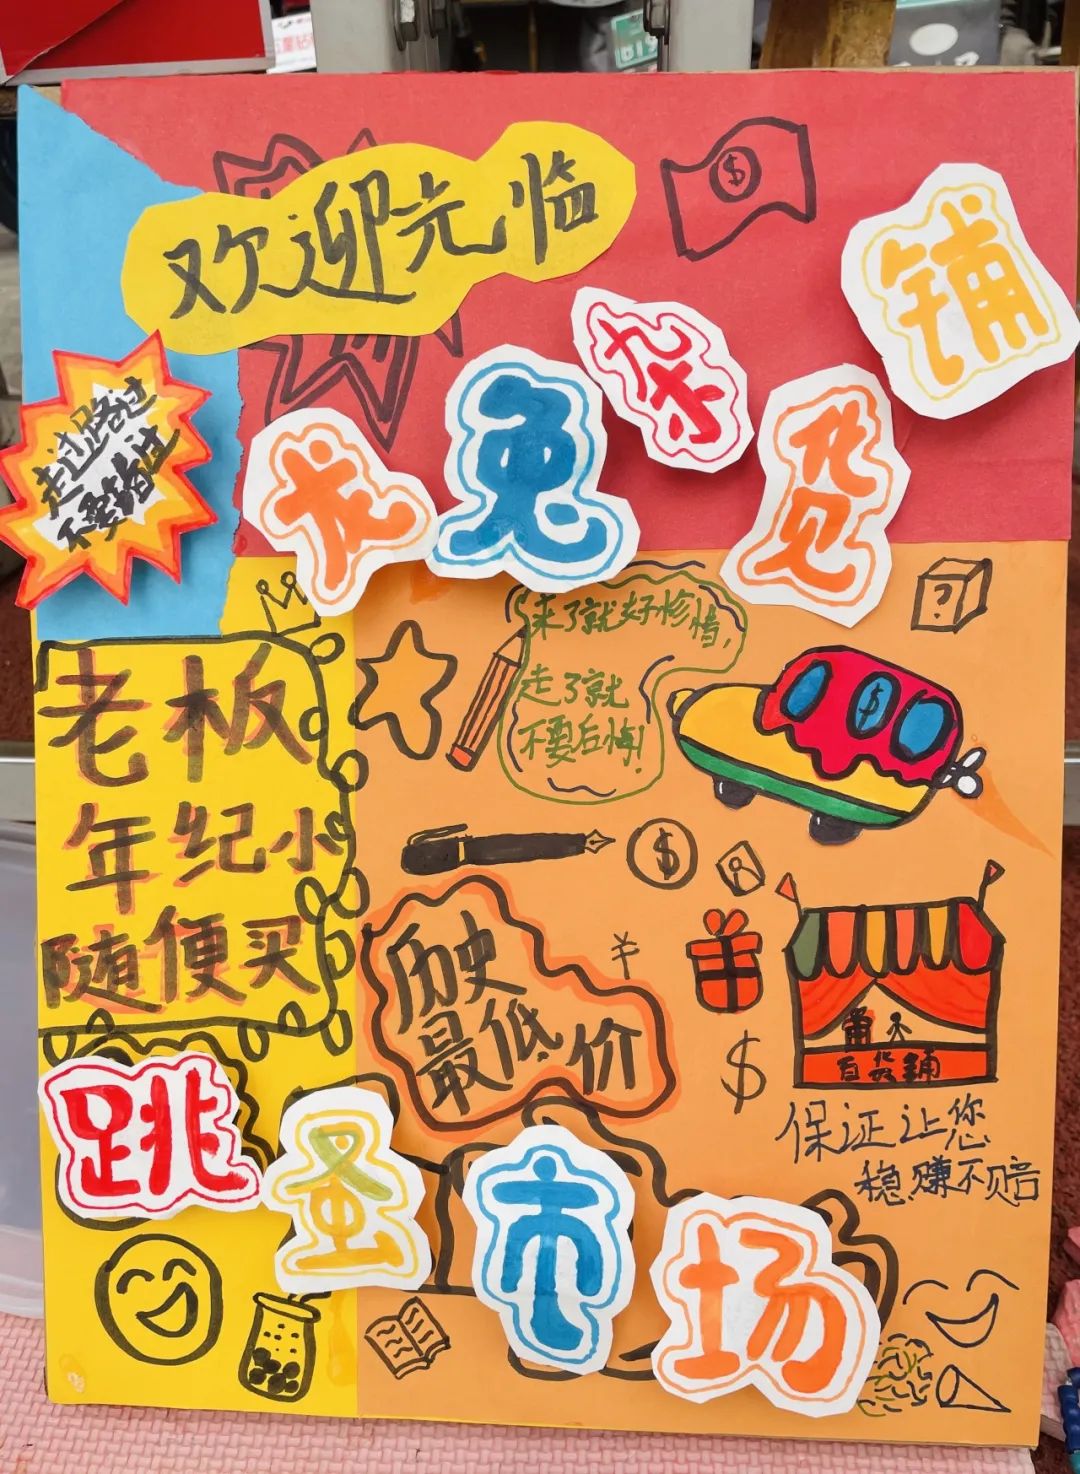 欢迎光临
走过路过
不要错过
龙兔杂货铺
来了就好珍惜，
走了就
不要后悔！
老板
年纪小
随便买
历史
最低价
百货鋪
保证让您
稳赚不赔
跳蚤市场